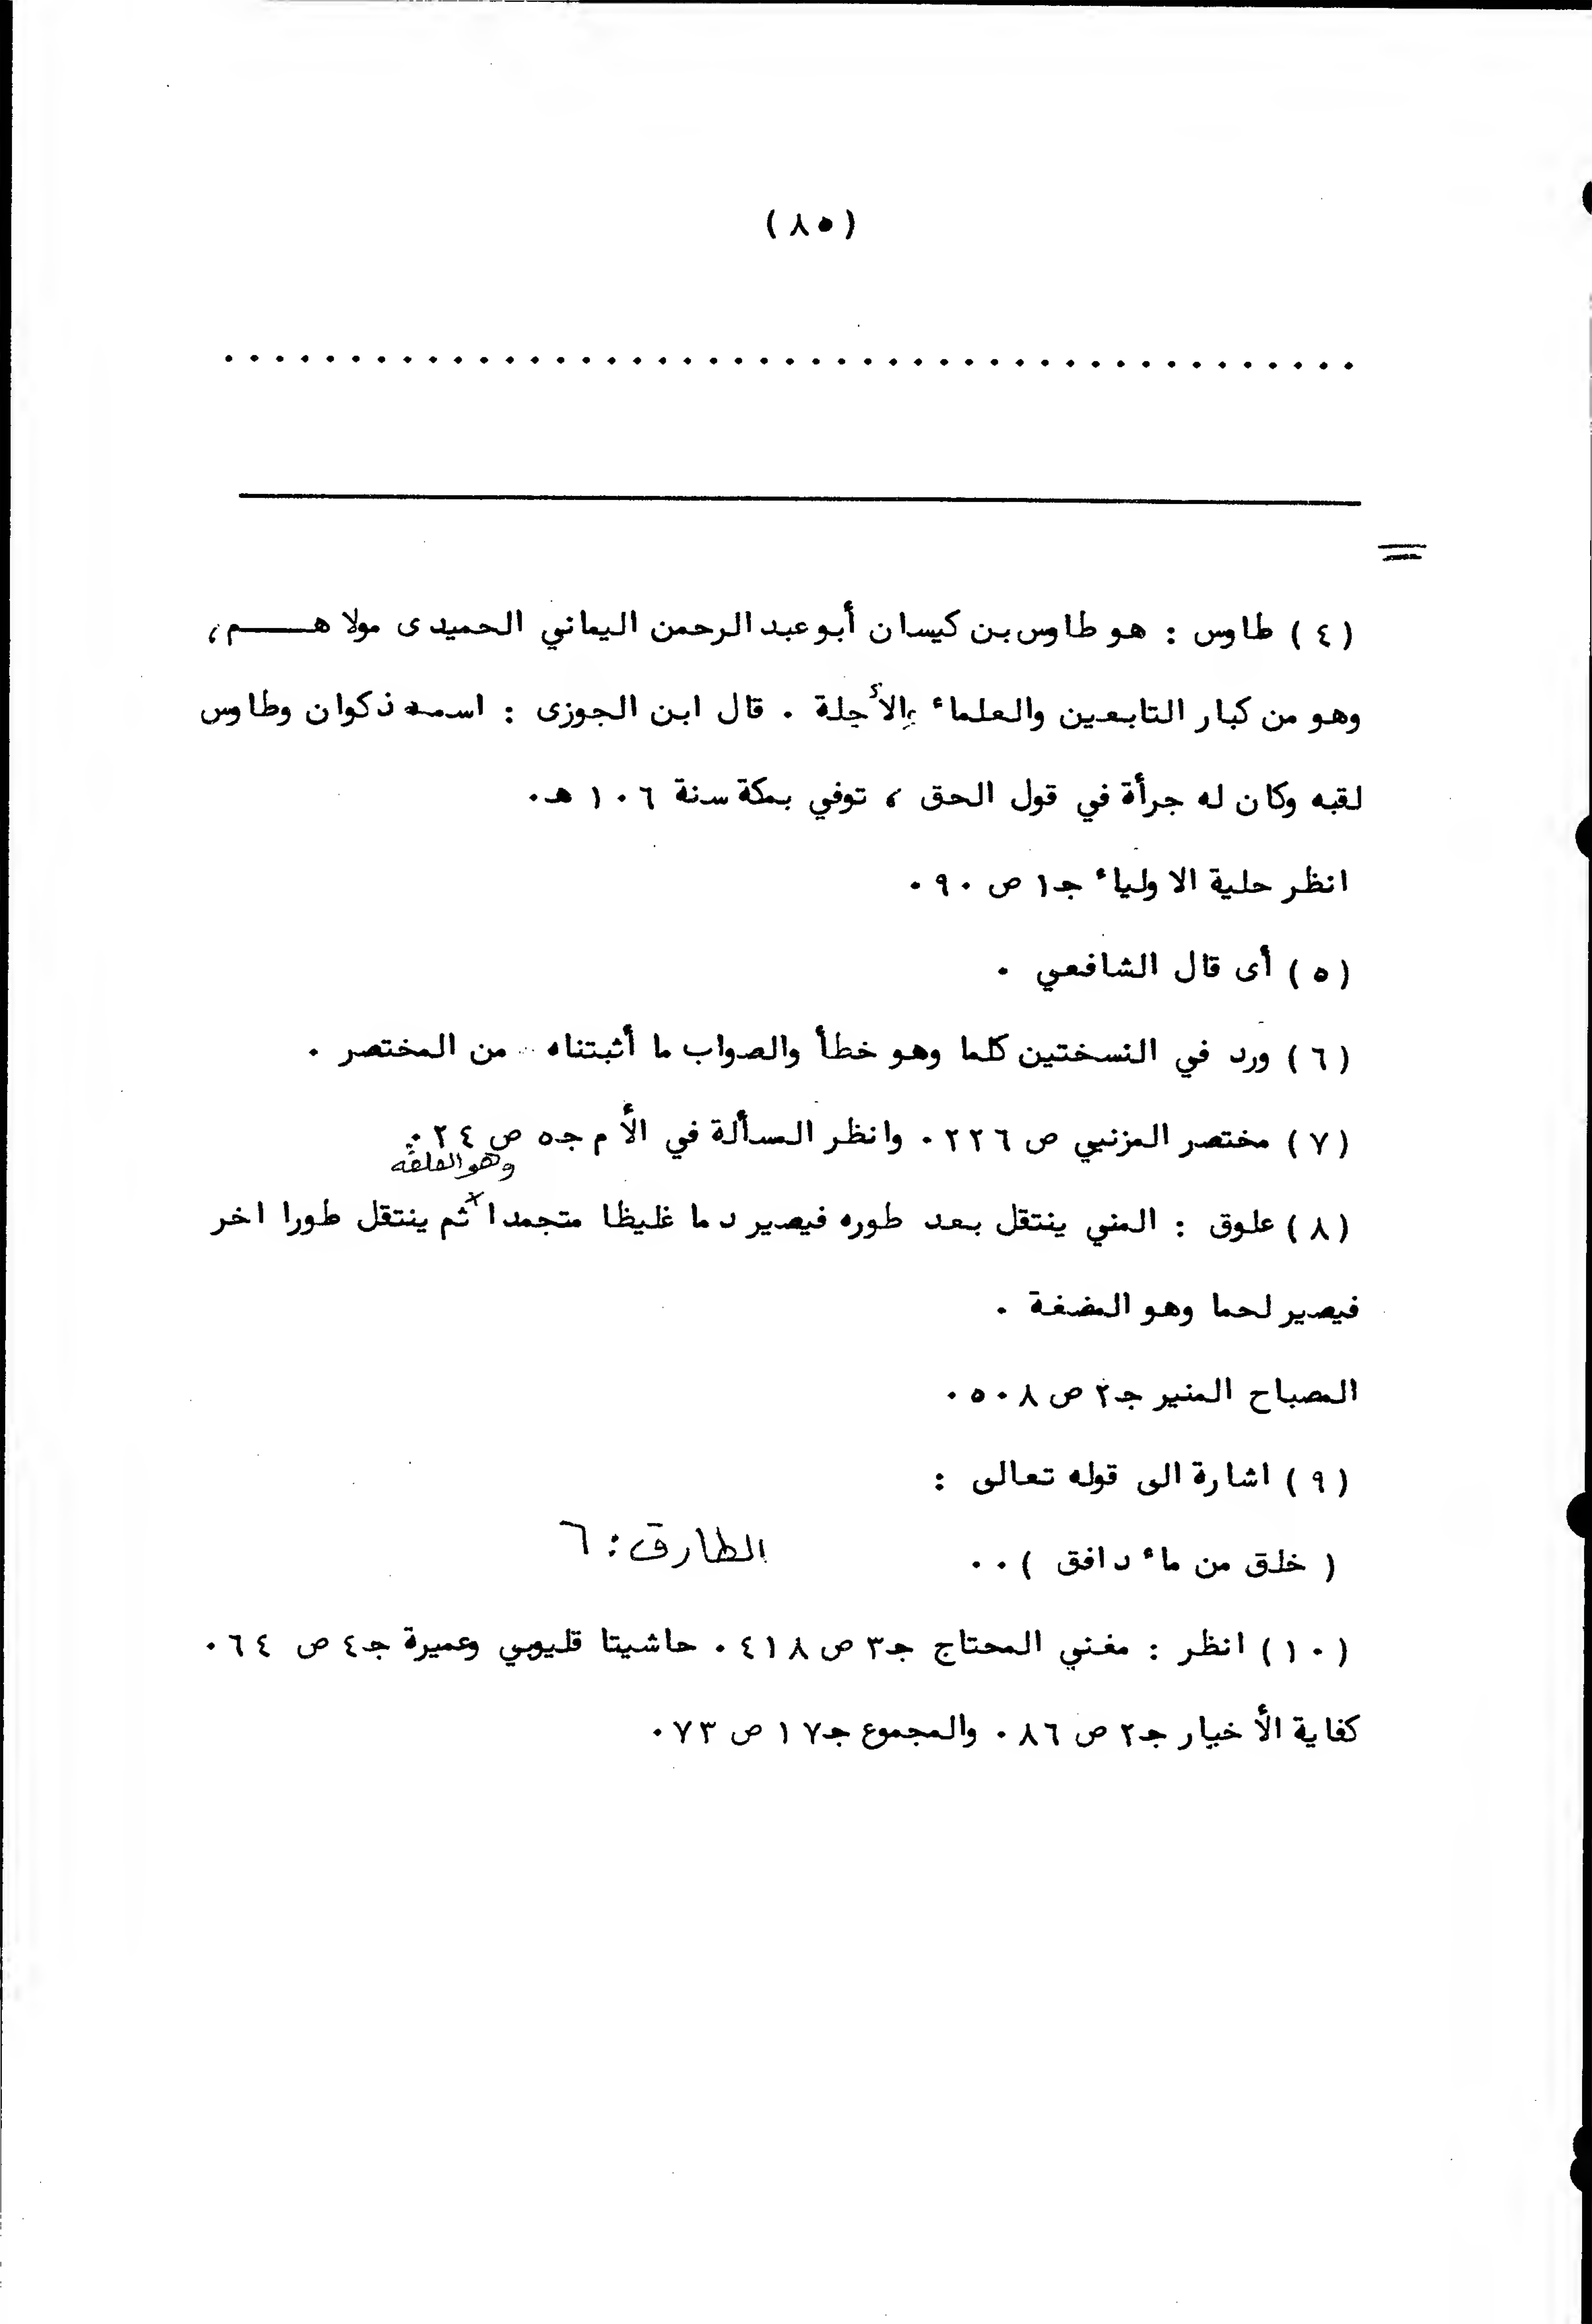 (٨٥)
. . . . . . . . . . . . . . . . . . . . . . . . . . . . . . . . . . . . . . . . . . . . .
=
(٤) طاوس : هو طاوس بن كيسان أبو عبد الرحمن اليماني الحميدى مولاهـــم ،
وهو من كبار التابعين والعلماء الأجلة . قال ابن الجوزى : اسمه ذكوان وطاوس
لقبه وكان له جرأة في قول الحق ، توفي بمكة سنة ١٠٦ هـ.
انظر حلية الاولياء جـ١ ص ٩٠ .
(٥) أى قال الشافعي .
(٦) ورد في النسختين كلما وهو خطأ والصواب ما أثبتناه من المختصر .
(٧) مختصر المزنيي ص ٢٢٦ . وانظر المسألة في الأم جـ٥ ص ٢٤ .
وهو العلقه
(٨) علوق : المني ينتقل بعد طوره فيصير دما غليظا متجمدا ثم ينتقل طورا اخر
فيصير لحما وهو المضغة .
المصباح المنير جـ٢ ص ٥٠٨ .
(٩) اشارة الى قوله تعالى :
( خلق من ماء دافق ) . . الطارق : ٦
(١٠) انظر : مغني المحتاج جـ٣ ص ٤١٨ . حاشيتا قليوبي وعميرة جـ٤ ص ٦٤ .
كفاية الأخيار جـ٢ ص ٨٦ . والمجموع جـ١٧ ص ٧٣ .